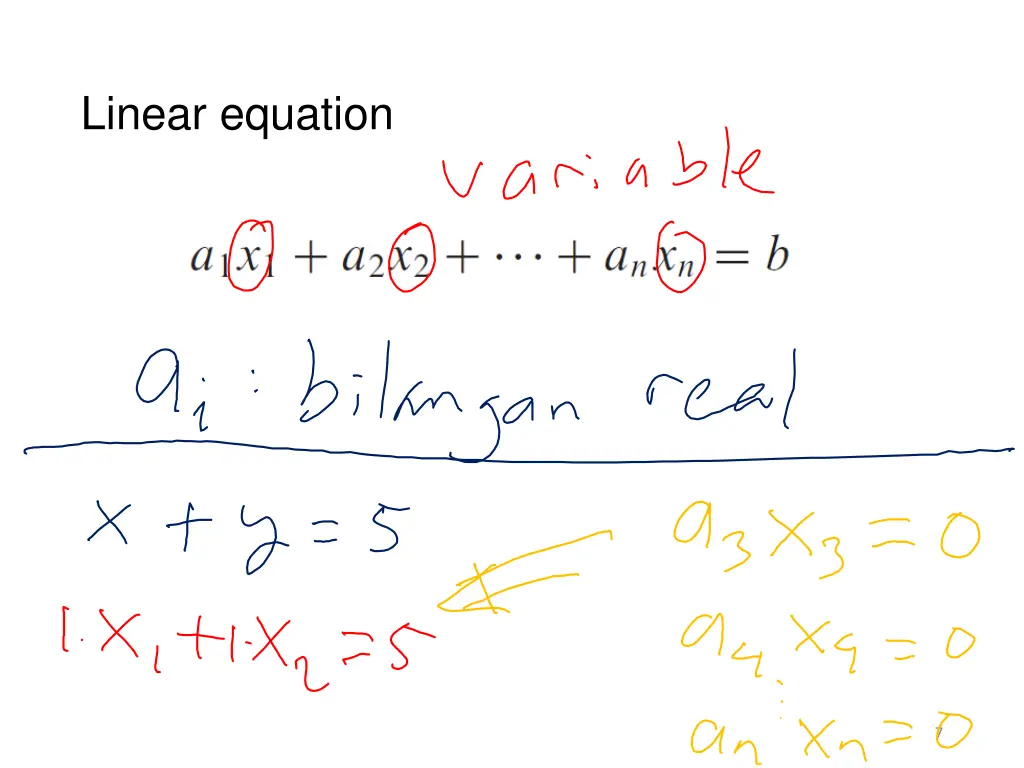 Linear equation
variable
a₁x₁ + a₂x₂ + ⋯ + aₙxₙ = b
aᵢ : bilangan real
x + y = 5
a₃x₃ = 0
1·x₁ + 1·x₂ = 5
a₄x₄ = 0
⋮
aₙxₙ = 0